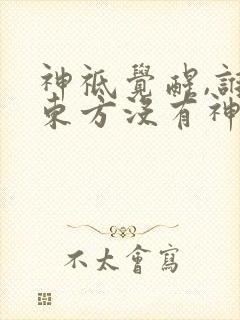 神祇覺醒,誰
東方沒有神
不太會寫